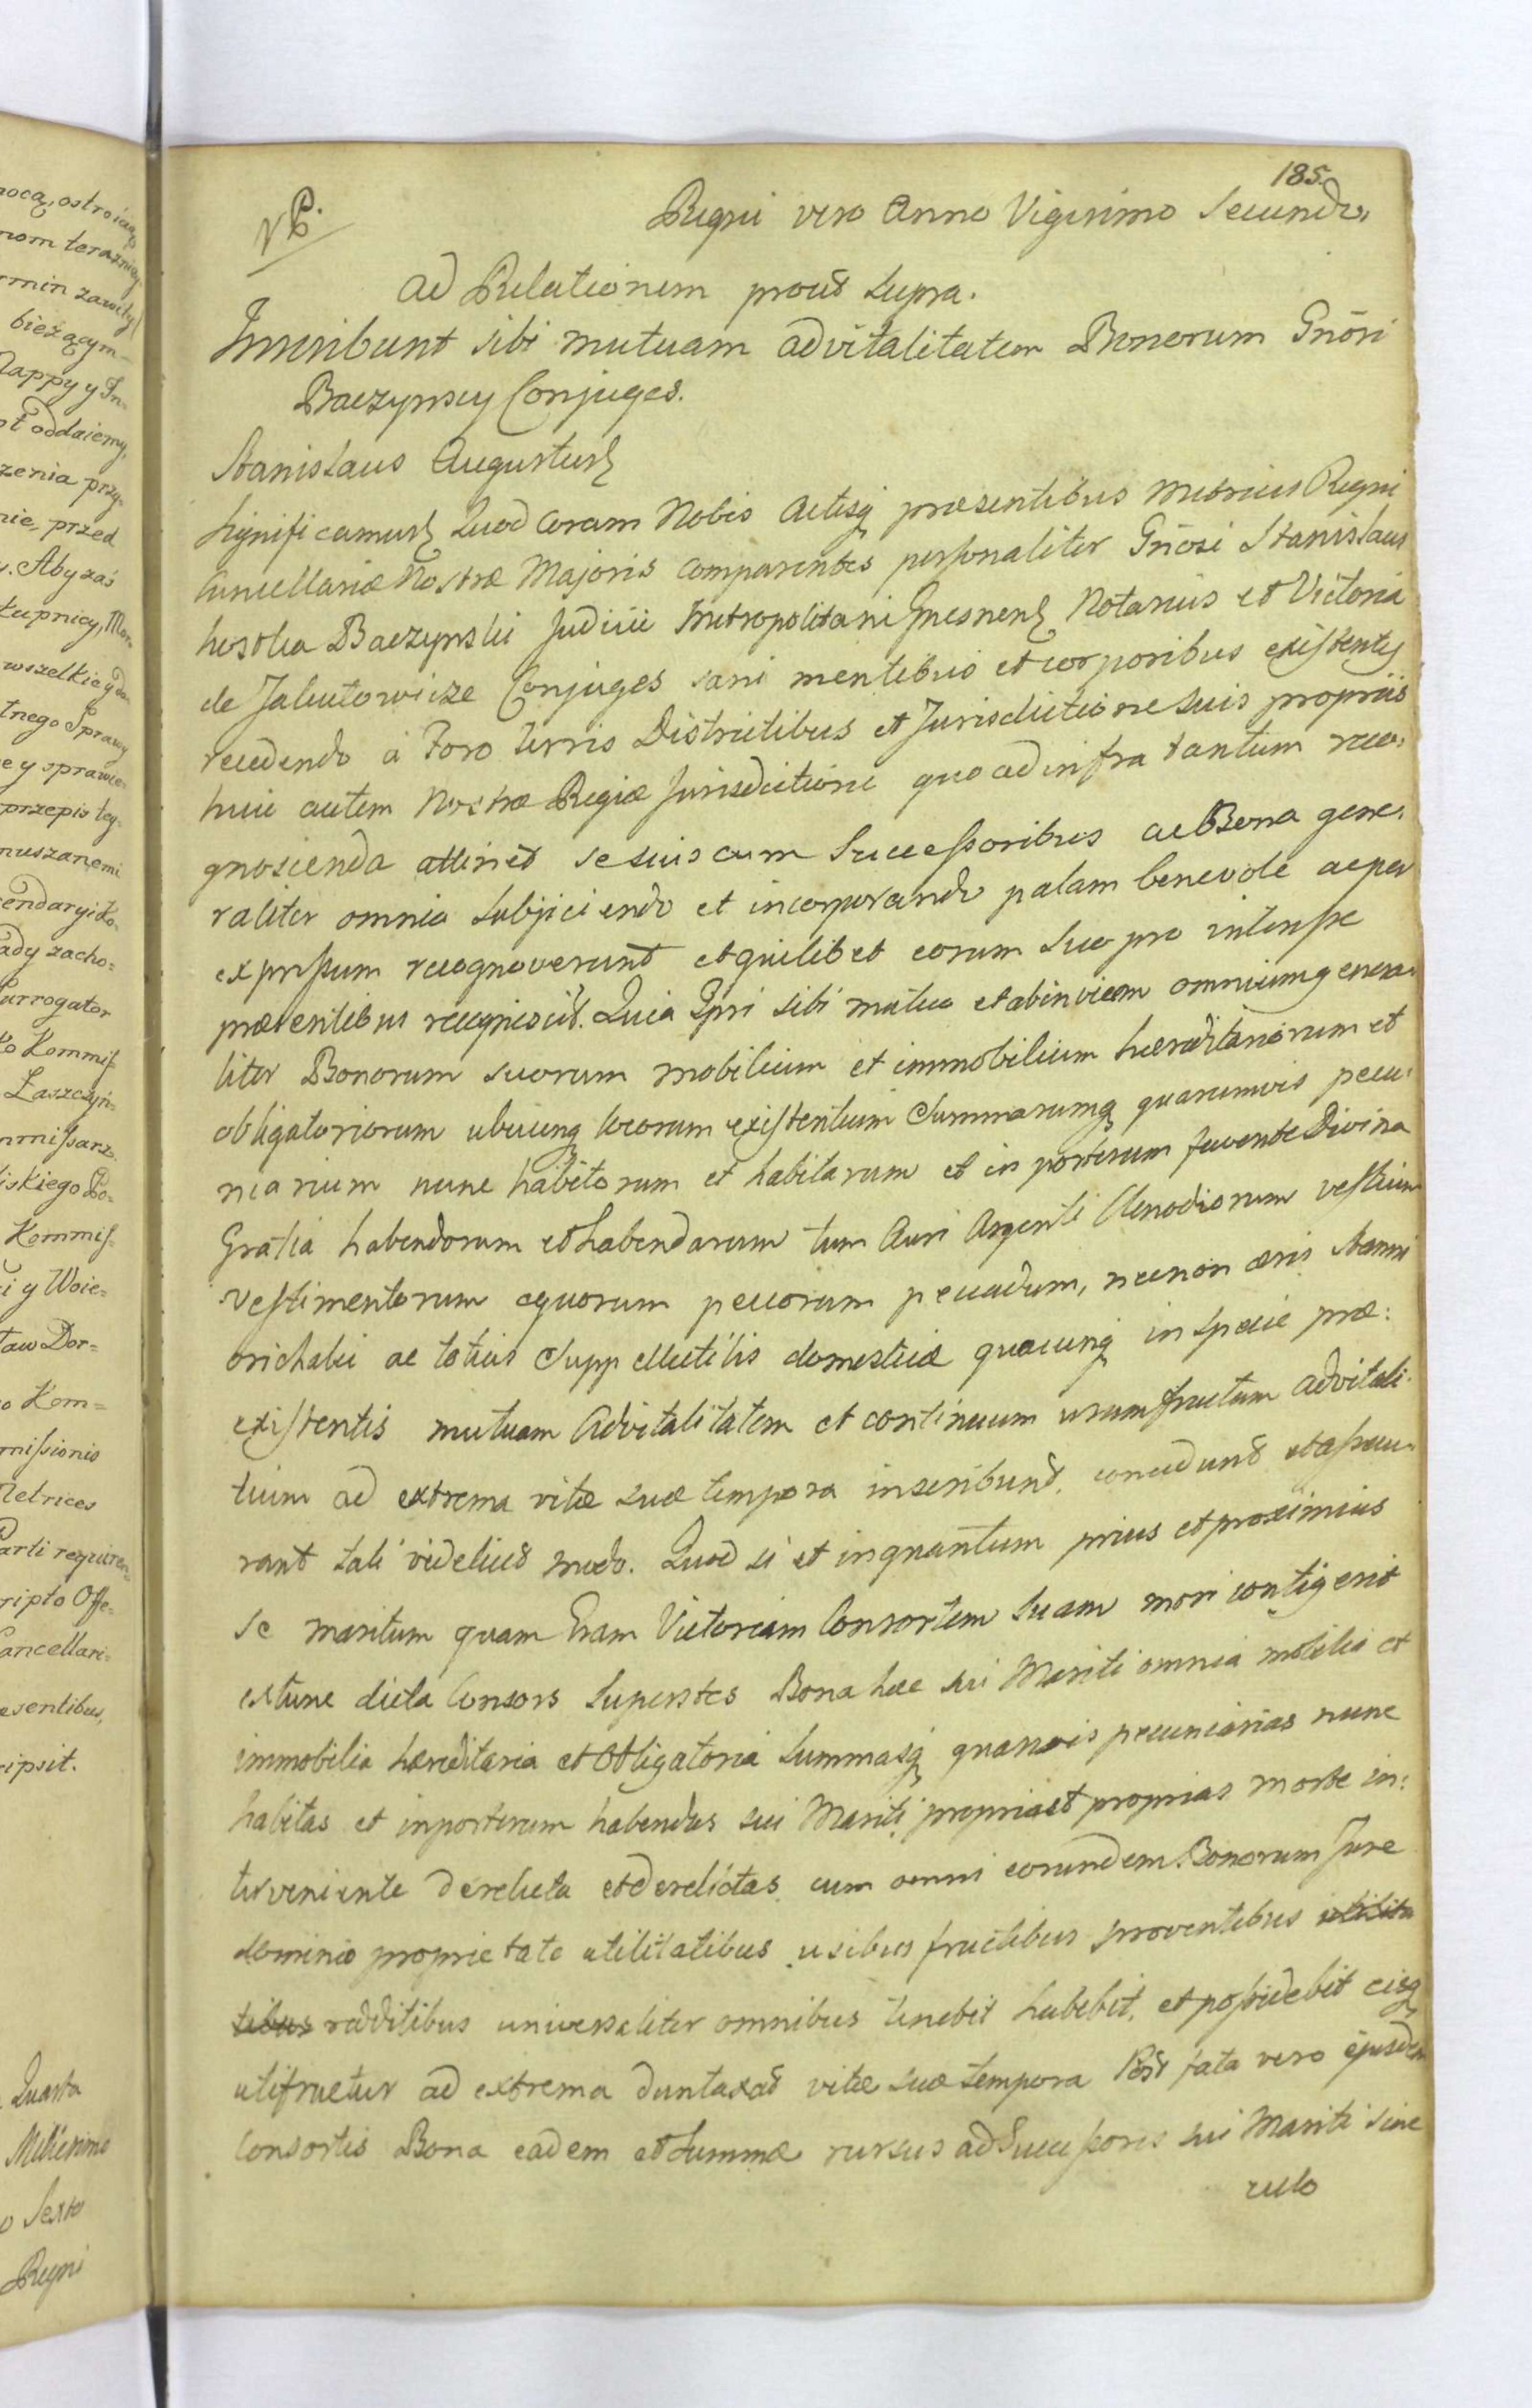 ocą, ostroi
nom teraźniey
rmin zawity
bieżącym
Mappy y In-
ot oddaiemy,
zenia przy-
nie, przed
y. Aby zaś
kupnicy, Mar-
wszelkiey
tnego Sprawy
e y sprawie-
przepis teg-
muszanemi
endaryi Ko-
ady zacho=
Surrogator
ko Kommiſ-
Łaszczyń-
mmiſsarz.
iskiego Po-
Kommiſ-
i y Woie-
ław Dor=
o Kom=
miſsionis
Metrices
Parti requiren-
ripto Offe-
Cancellari-
esentibus,
ripsit.
Quarta
Millesimo
o Sexto
Regni
185.
NB.
Regni vero Anno Vigesimo Secundo.
Ad Relationem prout supra.
Inscribunt sibi mutuam advitalitatem Bonorum Gnōsi
Baczynscy Conjuges.
Stanislaus Augustus
Significamus Quod coram Nobis Actisq praesentibus Metrices Regni
Cancellariæ Nostræ Majoris comparentes perſonaliter Gnōsi Stanislaus
Kostka Baczynski Judicii Metropolitani Gnesnens Notarius et Victoria
de Jalutowicze Conjuges sani mentibus et corporibus exiſtentes
recedendo à Foro terris Districtibus et Jurisdictione suis propriis
huic autem Nostræ Regiæ Jurisdictioni quo ad infra tantum reco-
gnoscenda attinet se suis cum Succeſsoribus ac Bona gene-
raliter omnia subjiciendo et incorporando palam benevole ac per
expreſsum recognoverunt et quilibet eorum suo pro intereſse
præsentibus recognoscit. Quia Ipsi sibi mutuo et ab invicem omnium genera-
liter Bonorum suorum mobilium et immobilium hæreditariorum et
obligatoriorum ubicunq locorum exiſtentium Summarumq quarumvis pecu-
niarium nunc habitorum et habitarum et in posterum favente Divina
Gratia habendorum et habendarum tum Auri Argenti Clenodiorum veſtium
veſtimentorum equorum pecorum pecudum, necnon æris Stanni
orichalci ac totius Suppellectilis domesticæ quacunq in specie præ:
exiſtentis mutuam Advitalitatem et continuum usumfructum advitali-
tium ad extrema vitæ suæ tempora inscribunt, concedunt et aſsecu-
rant tali videlicet modo. Quod si et inquantum prius et proximius
se maritum quam Eram Victoriam Consortem suam mori contigerit
extunc dicta Consors superstes Bona hæc sui Mariti omnia mobilia et
immobilia hæreditaria et Obligatoria Summasq quasvis pecuniarias nunc
habitas et inposterum habendas sui Mariti propria et proprias morte in:
terveniente derelicta et derelictas cum omni eorundem Bonorum Jure
dominio proprietate utilitatibus usibus fructibus proventibus utilita
tibus redditibus universaliter omnibus tenebit habebit et poſsidebit eisq
utifruetur ad extrema duntaxat vitæ suæ tempora Post fata vero ejusdem
Consortis Bona eadem et Summæ rursus ad Succeſsores sui Mariti sine
ullo